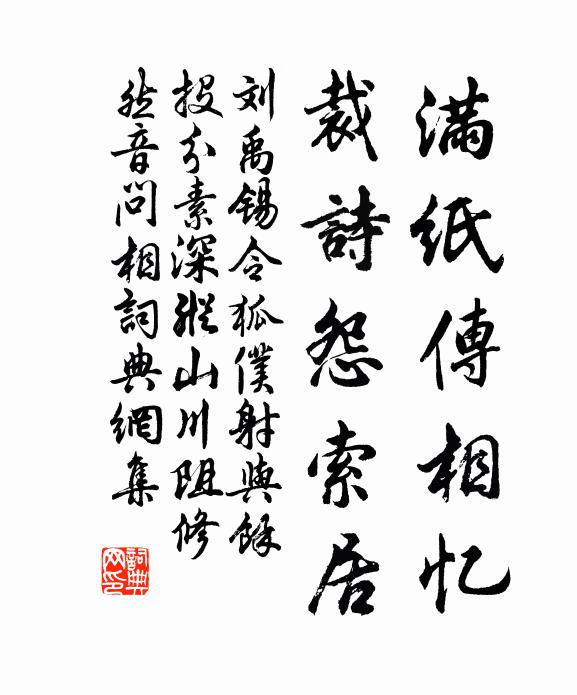 满紙傳相忆
裁詩怨索居
刘禹锡令狐僕射與餘
投分素深縱山川阻修
然音問相詞典網集
詞典网印